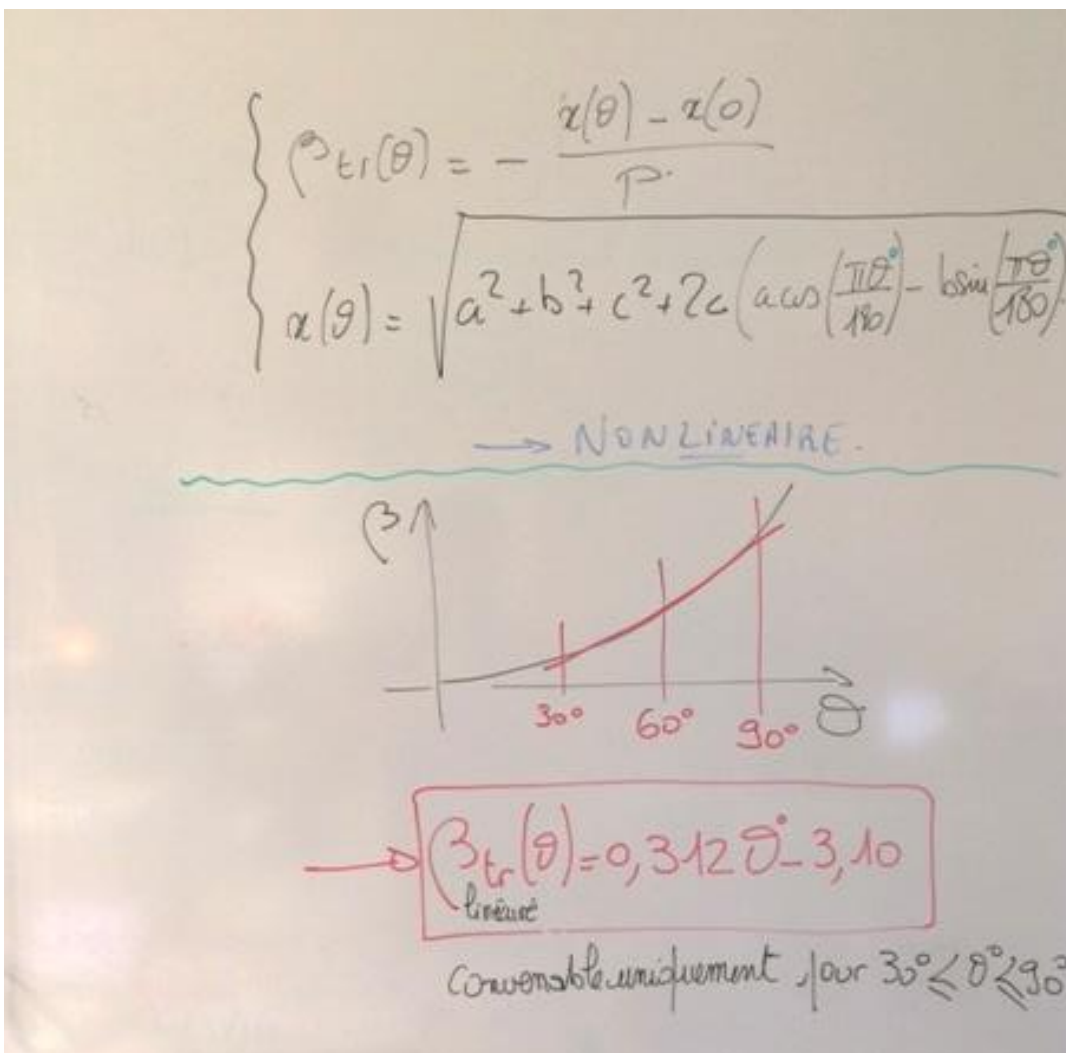 βtr(θ) = - x(θ) - x(0) / P.
x(θ) = √a² + b² + c² + 2c (a cos(πθ°/180) - b sin(πθ°/180)
→ NON LINEAIRE.
β
30° 60° 90° θ
βtr(θ) = 0,312 θ° - 3,10
linéarisé
Convenable uniquement pour 30° ≤ θ° ≤ 90°